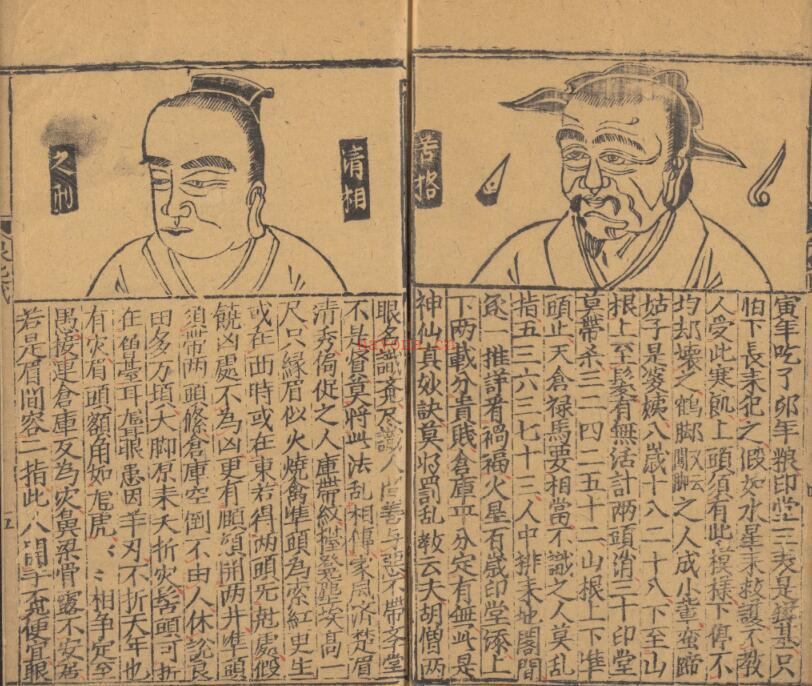 苦格
寅年吃了卯年粮印堂
怕下長來犯之假如水星來救護不教
人受此寒飢上頭須有此模樣下停不
均却壞之鶴脚之人成小輩蛮蹄
姑子是婆姨八歲十八二十八下至山
根上至髮有無活計兩頭消三十印堂
莫帶杀三二四二五十二山根上下準
頭止天倉禄馬要相當不識之人莫乱
指五三六三七十三人中排来地閣間
逐一推詳看禍福火星百歲印堂添上
下兩截分貴賎倉庫平分定有無此是
神仙真妙訣莫將乱教云夫胡僧两
清相
之刑
眼多識
不是賢莫將此法乱相傳家風済楚眉
清秀侷促之人庫帶紋埃高一
尺只緣眉似火燒準頭為索紅史生
或在西時或在東若得兩頭无尅處假
饒凶處不為凶更有開两井準頭
須帶两頭倉庫空倒不由人休説良
田多万頃大脚原来夭折災髻頭可折
在耳眼患因羊刃不折天年也
有災眉頭額角如龍虎相争定至
馬援更倉庫反為災鼻梁骨露不安居
若是眉間容二指此人開手便宜眼
五